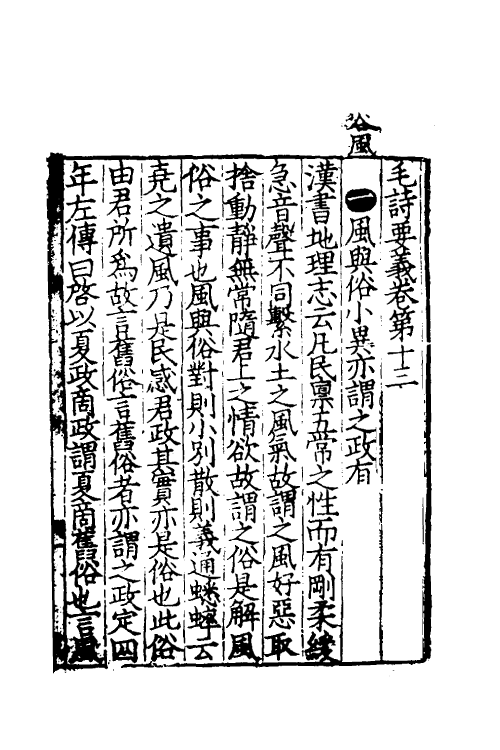 俗風
毛詩要義卷第十三
一風與俗小異亦謂之政有
漢書地理志云凡民禀五常之性而有剛柔緩
急音聲不同繫水土之風氣故謂之風好惡取
捨動靜無常隨君上之情欲故謂之俗是解風
俗之事也風與俗對則小別散則義通蟋蟀云
堯之遺風乃是民感君政其實亦是俗也此俗
由君所為故言舊俗言舊俗者亦謂之政定四
年左傳曰啓以夏政商政謂夏商舊俗也言風